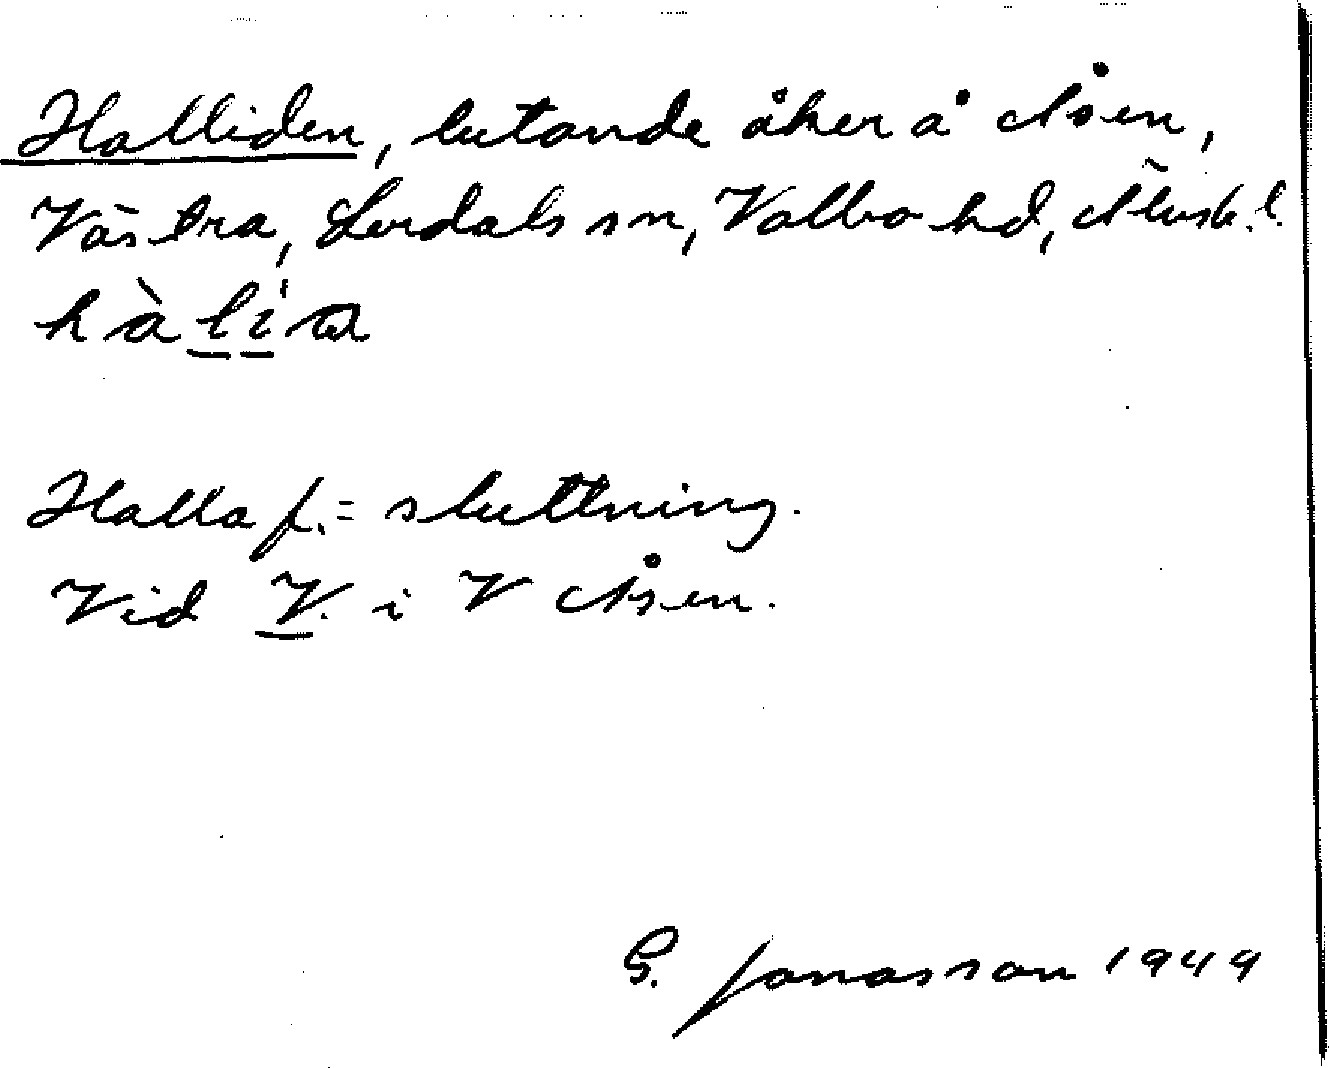 Halliden, lutande åker å Åsen,
Västra, Lerdals sn, Valbo hd, Älvsb. l.
hàli
Halla f. = sluttning.
Vid V. i V Åsen.
G. Jonasson 1949